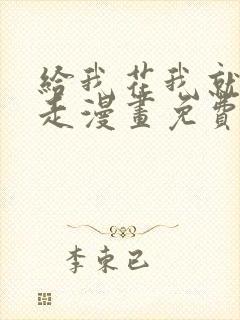 給我花我就
走漫畫免費
李東已